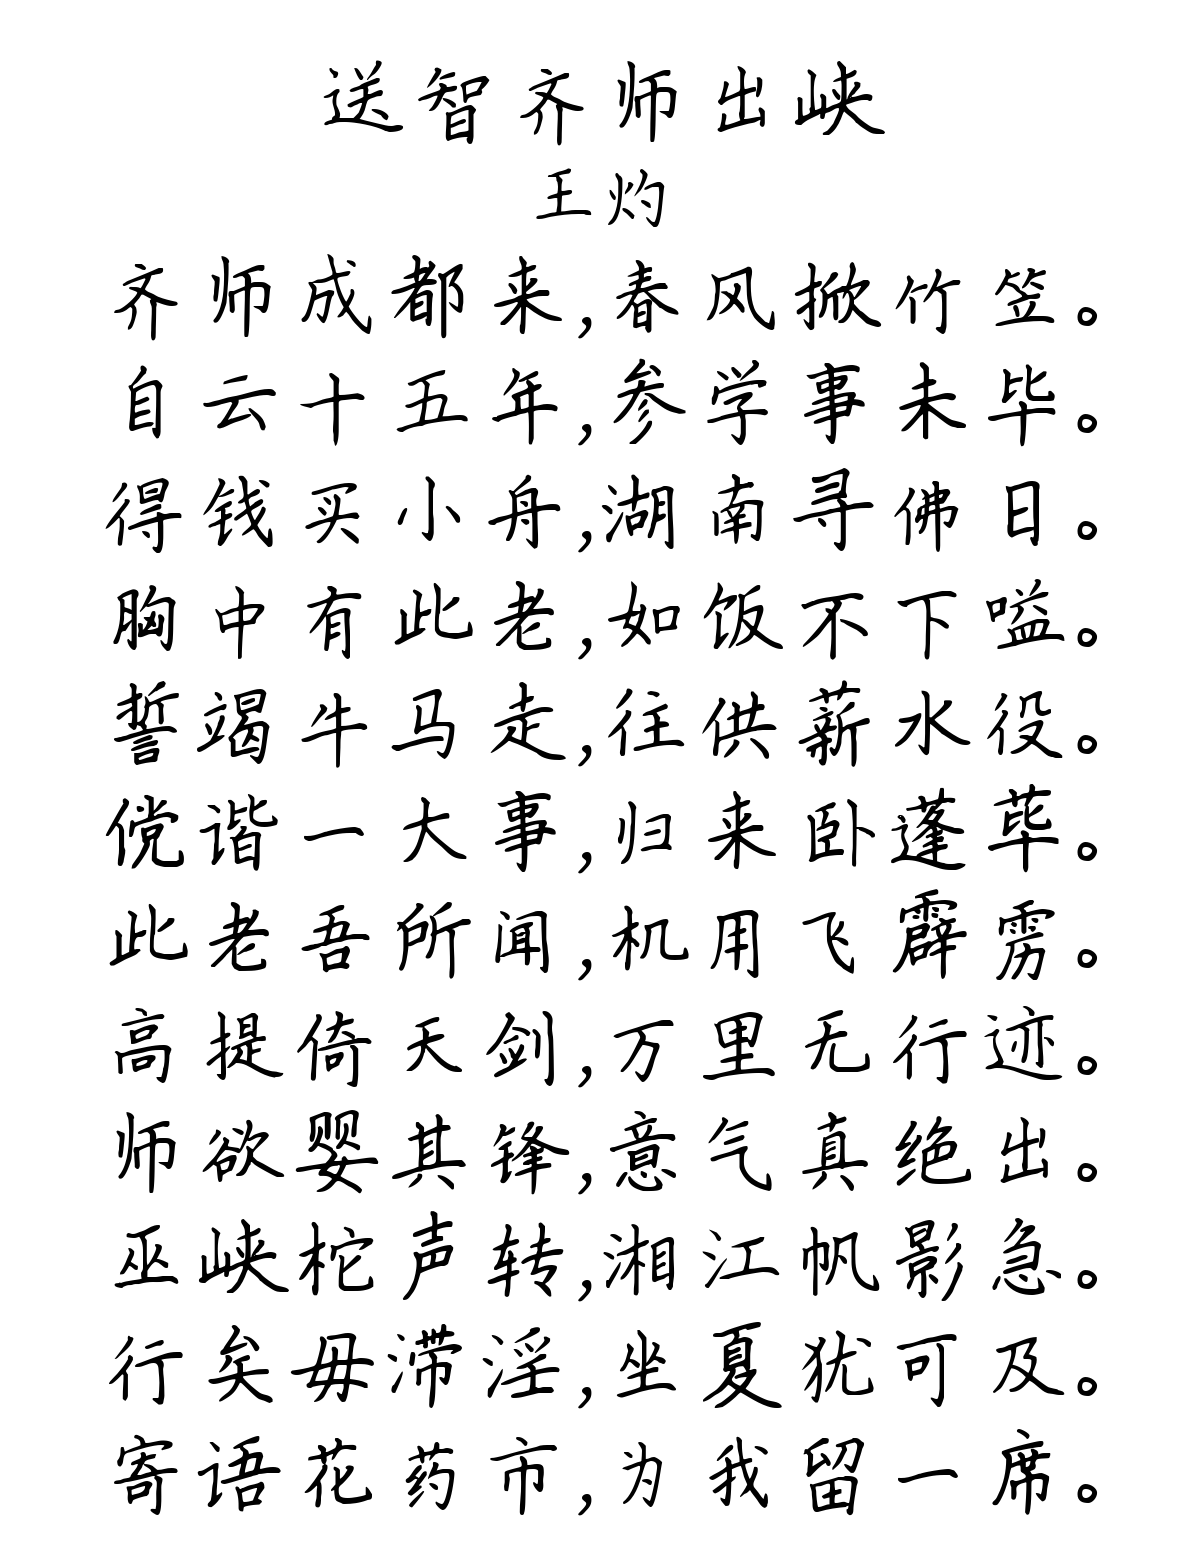 送智齐师出峡
王灼
齐师成都来,春风掀竹笠。
自云十五年,参学事未毕。
得钱买小舟,湖南寻佛日。
胸中有此老,如饭不下嗌。
誓竭牛马走,往供薪水役。
傥谐一大事,归来卧蓬荜。
此老吾所闻,机用飞霹雳。
高提倚天剑,万里无行迹。
师欲婴其锋,意气真绝出。
巫峡柁声转,湘江帆影急。
行矣毋滞淫,坐夏犹可及。
寄语花药市,为我留一席。